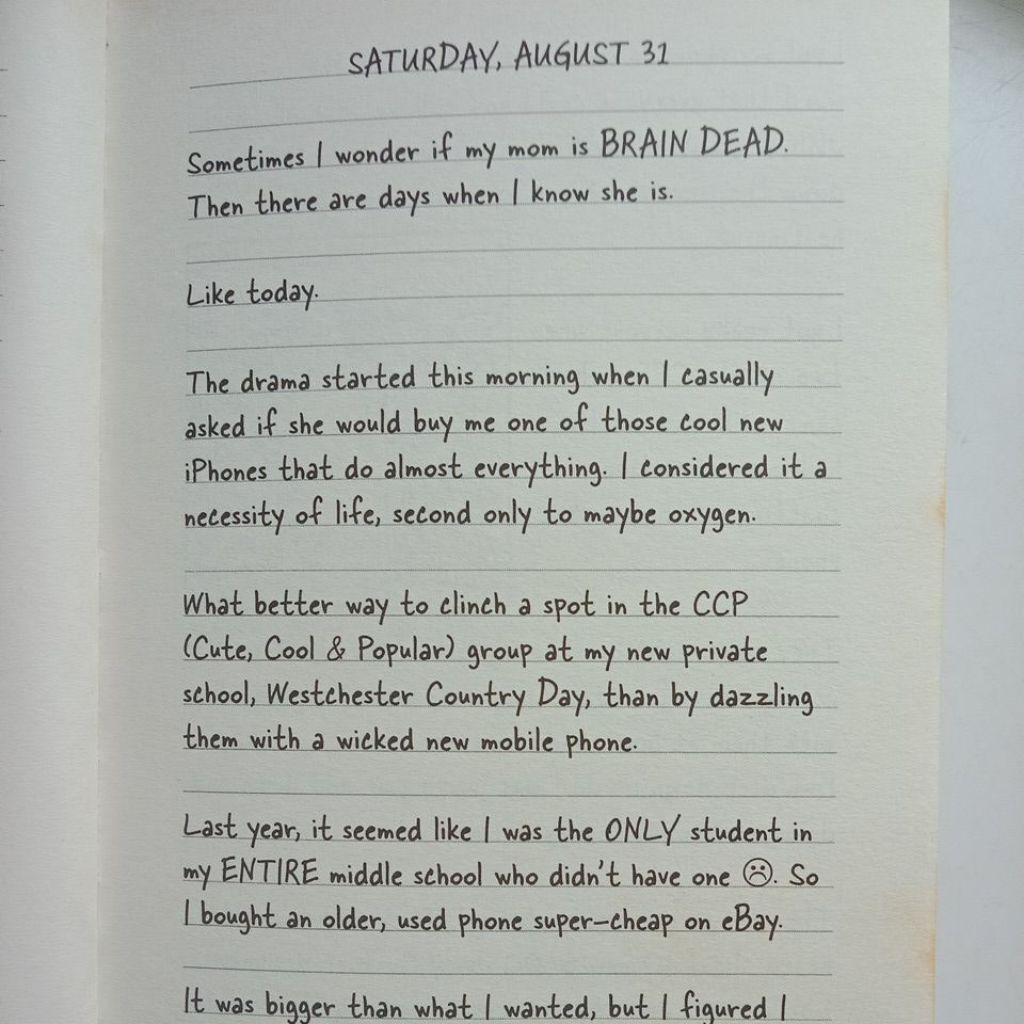 SATURDAY, AUGUST 31
Sometimes I wonder if my mom is BRAIN DEAD.
Then there are days when I know she is.
Like today.
The drama started this morning when I casually
asked if she would buy me one of those cool new
iPhones that do almost everything. I considered it a
necessity of life, second only to maybe oxygen.
What better way to clinch a spot in the CCP
(Cute, Cool & Popular) group at my new private
school, Westchester Country Day, than by dazzling
them with a wicked new mobile phone.
Last year, it seemed like I was the ONLY student in
my ENTIRE middle school who didn't have one ☹. So
I bought an older, used phone super-cheap on eBay.
It was bigger than what I wanted, but I figured I